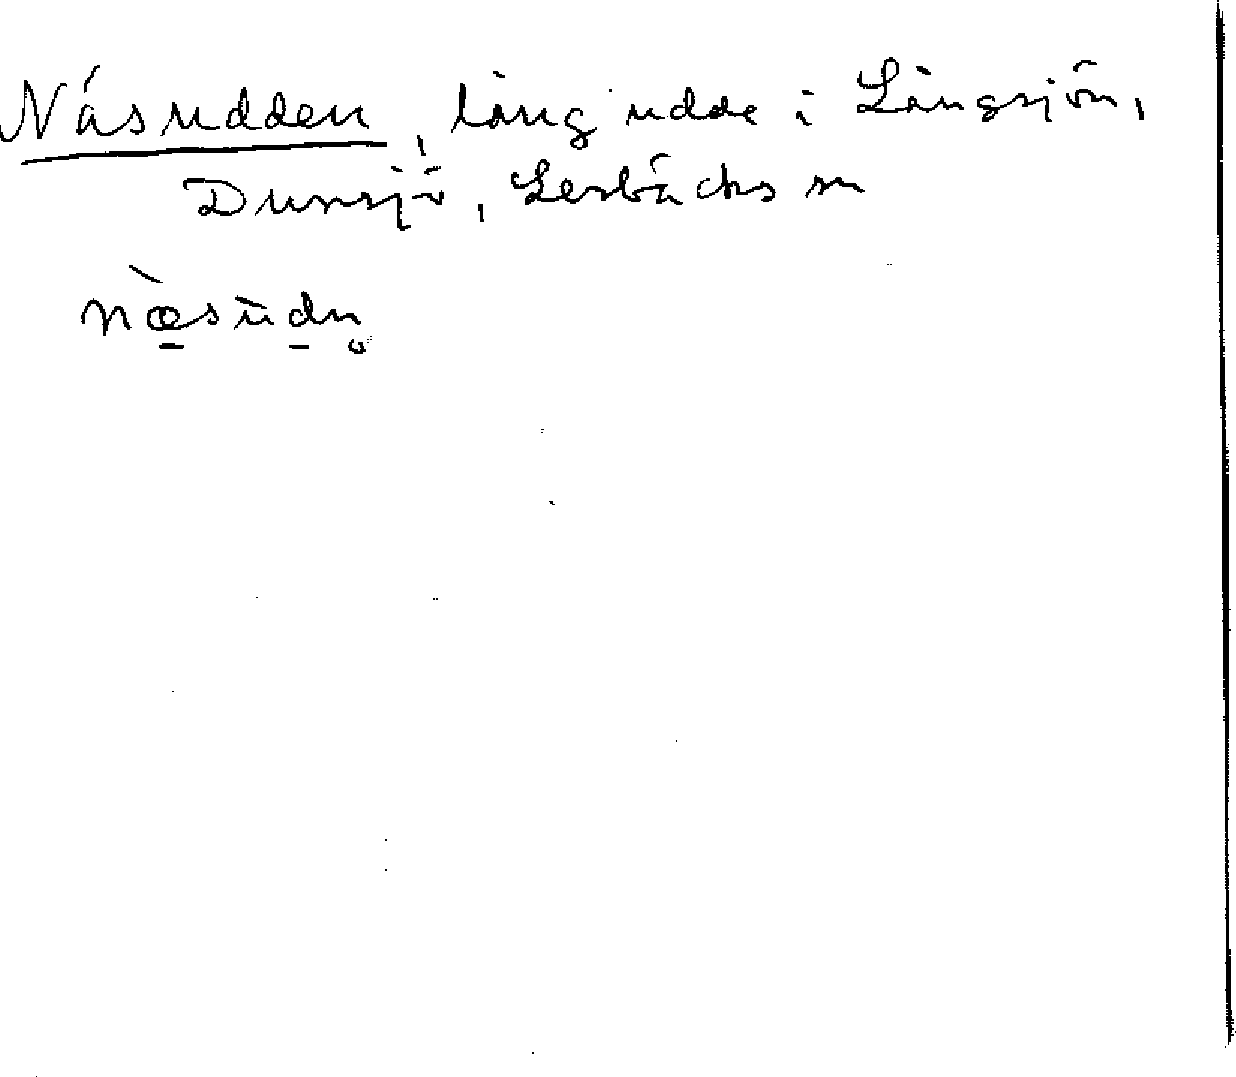 Näsudden, lång udde i Långsjön,
Dunsjö, Lerbäcks sn
næ̀sūdn̥